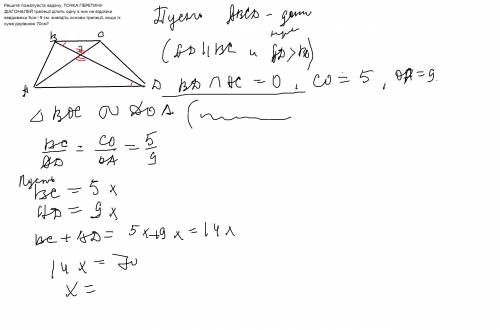 Решите пожалуста задачу, ТОЧКА ПЕРЕТИНУ
ДІАГОНАЛЕЙ трапеції ділить одну з них на відрізки
завдовжки 5см і 9 см. знайдіть основи трапеції, якщо їх
сума дорівнює 70см?
Пусть ABCD - дан
(AD || BC и AD >
BD ∩ AC = O, CO = 5, OA = 9.
B C
A D
△ BOC ∾ DOA (
BC/AD = CO/OA = 5/9
Пусть
BC = 5x
AD = 9x
BC + AD = 5x+9x = 14x
14x = 70
x =